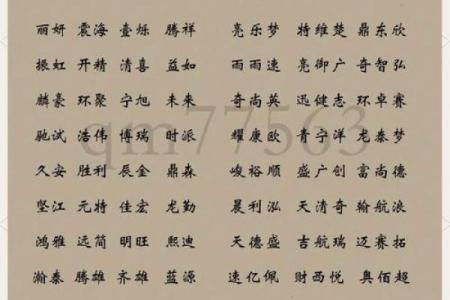 丽妍 震海 壹烁 腾祥 亮乐梦 特维楚 鼎东欣
振虹 开精 清喜 益如 雨雨速 亮御广 奇智弘
麟豪 环聚 宁旭 未来 奇尚英 迅健志 环卓赛
驰试 浩伟 博瑞 时派 耀康欧 青宁洋 龙泰梦
久安 胜利 辰金 鼎森 峻裕顺 盛广创 富尚德
坚江 元特 佳宏 龙勤 晨利泓 天清奇 翰航浪
鸿雅 远简 明旺 熙迪 天德盛 吉航瑞 迈赛拓
瀚秦 腾雄 齐雄 蓝源 速亿佩 财西悦 奥佰超
qm77563